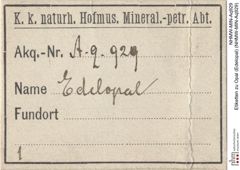 K. k. naturh. Hofmus. Mineral.-petr. Abt.
Akq.-Nr. A. q. 929
Name Edelopal
Fundort
1
NHMW-MIN-Aq929
Etiketten zu Opal (Edelopal) (NHMW-MIN-Aq929)